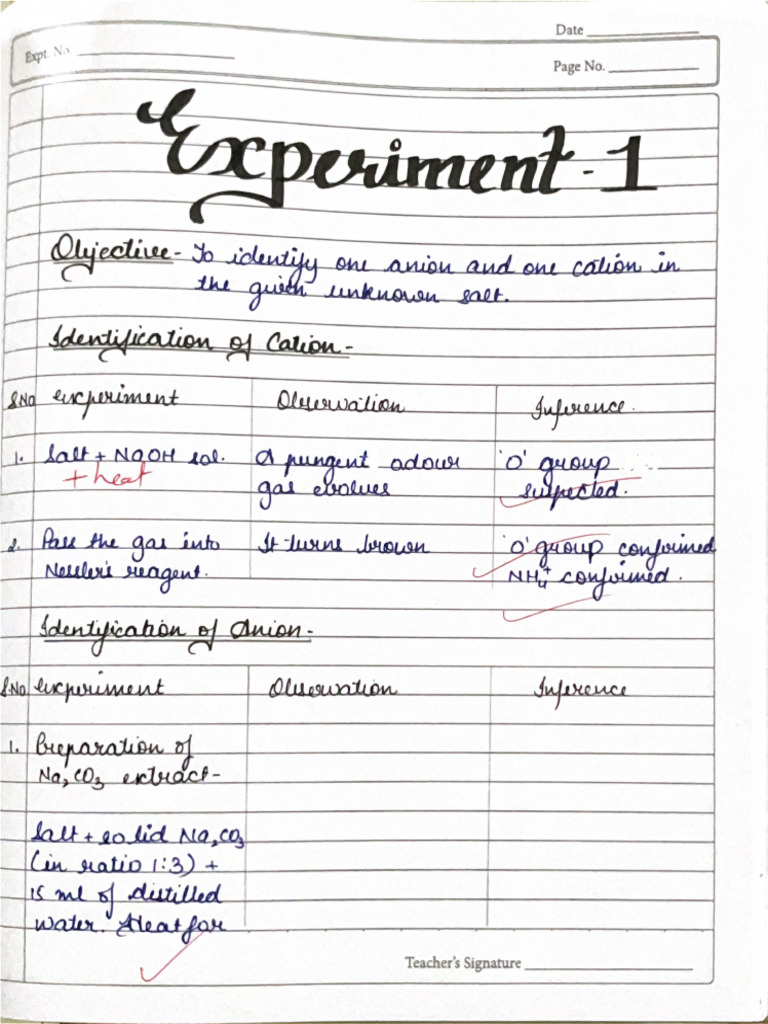 Date
Expt. No.
Page No.
Experiment-1
Objective- To identify one anion and one cation in
the given unknown salt.
Identification of Cation-
S.No experiment Observation Inference.
1. Salt + NaOH sol. A pungent odour 'O' group
+ heat gas evolves suspected.
2. Pass the gas into It turns brown 'O' group confirmed
Nessler's reagent. NH₄⁺ confirmed.
Identification of Anion-
S.No experiment Observation Inference
1. Preparation of
Na₂CO₃ extract-
Salt + solid Na₂CO₃
(in ratio 1:3) +
15 ml of distilled
water. Heat for
Teacher's Signature